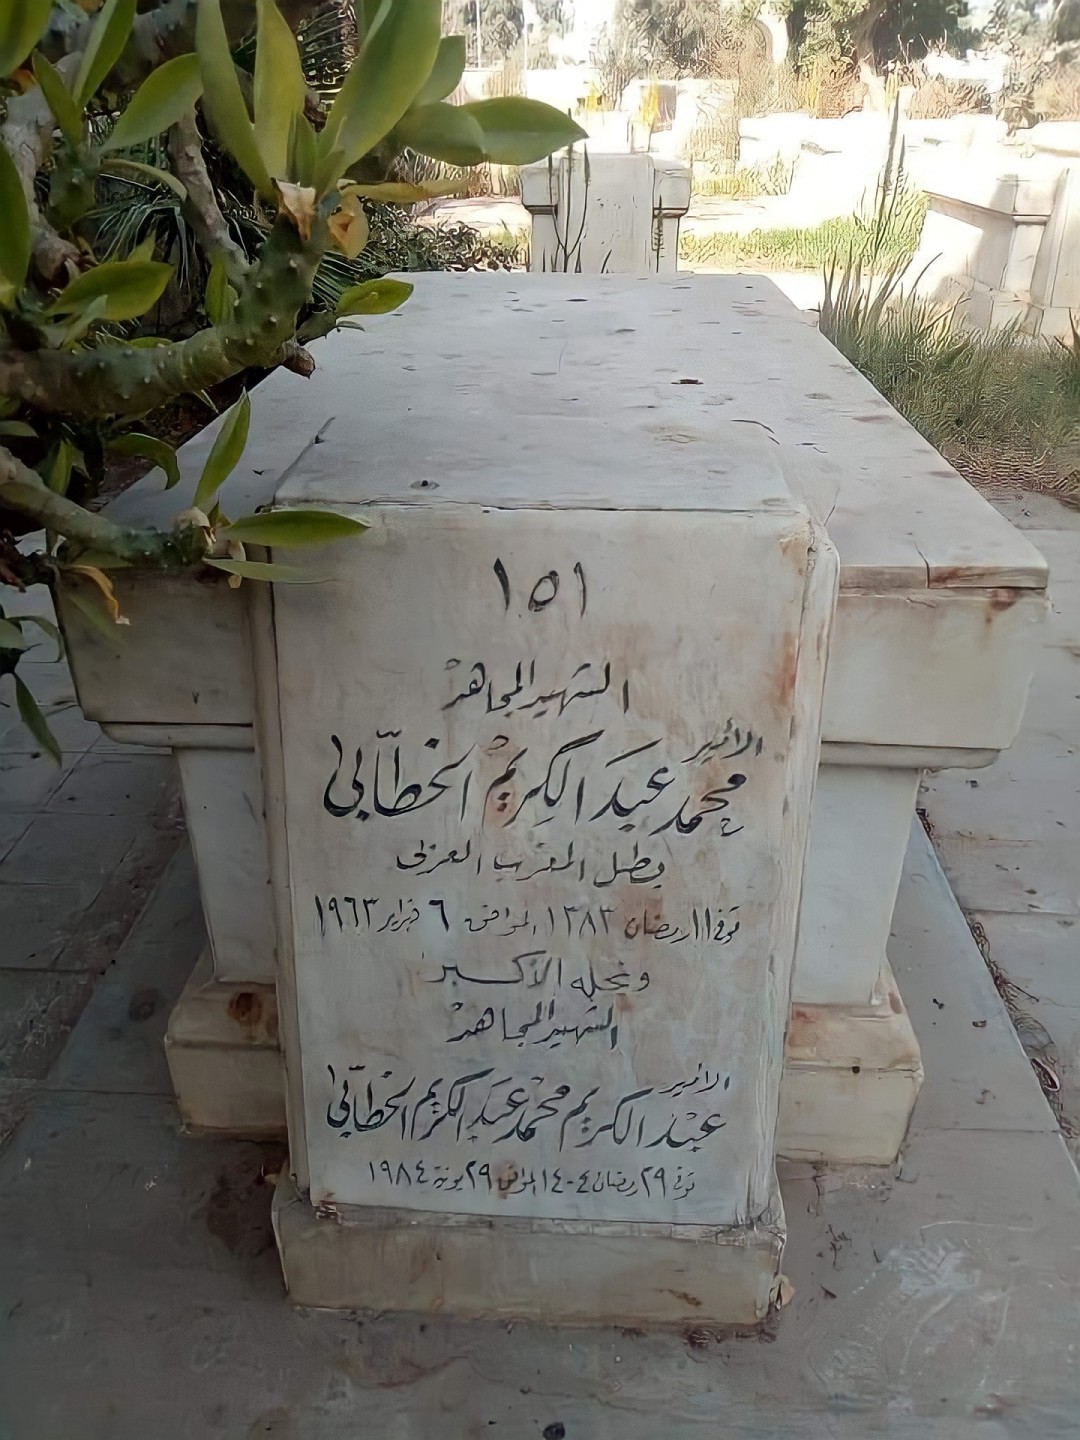 ١٥١
الشهيد المجاهد
الأمير
محمد عبد الكريم الخطابى
بطل المغرب العربى
توفى ١١ رمضان ١٣٨٣ الموافق ٦ فبراير ١٩٦٣
ونجله الأكبر
الشهيد المجاهد
الأمير
عبد الكريم محمد عبد الكريم الخطابى
توفى ٢٩ رمضان ١٤٠٤ الموافق ٢٩ يونية ١٩٨٤